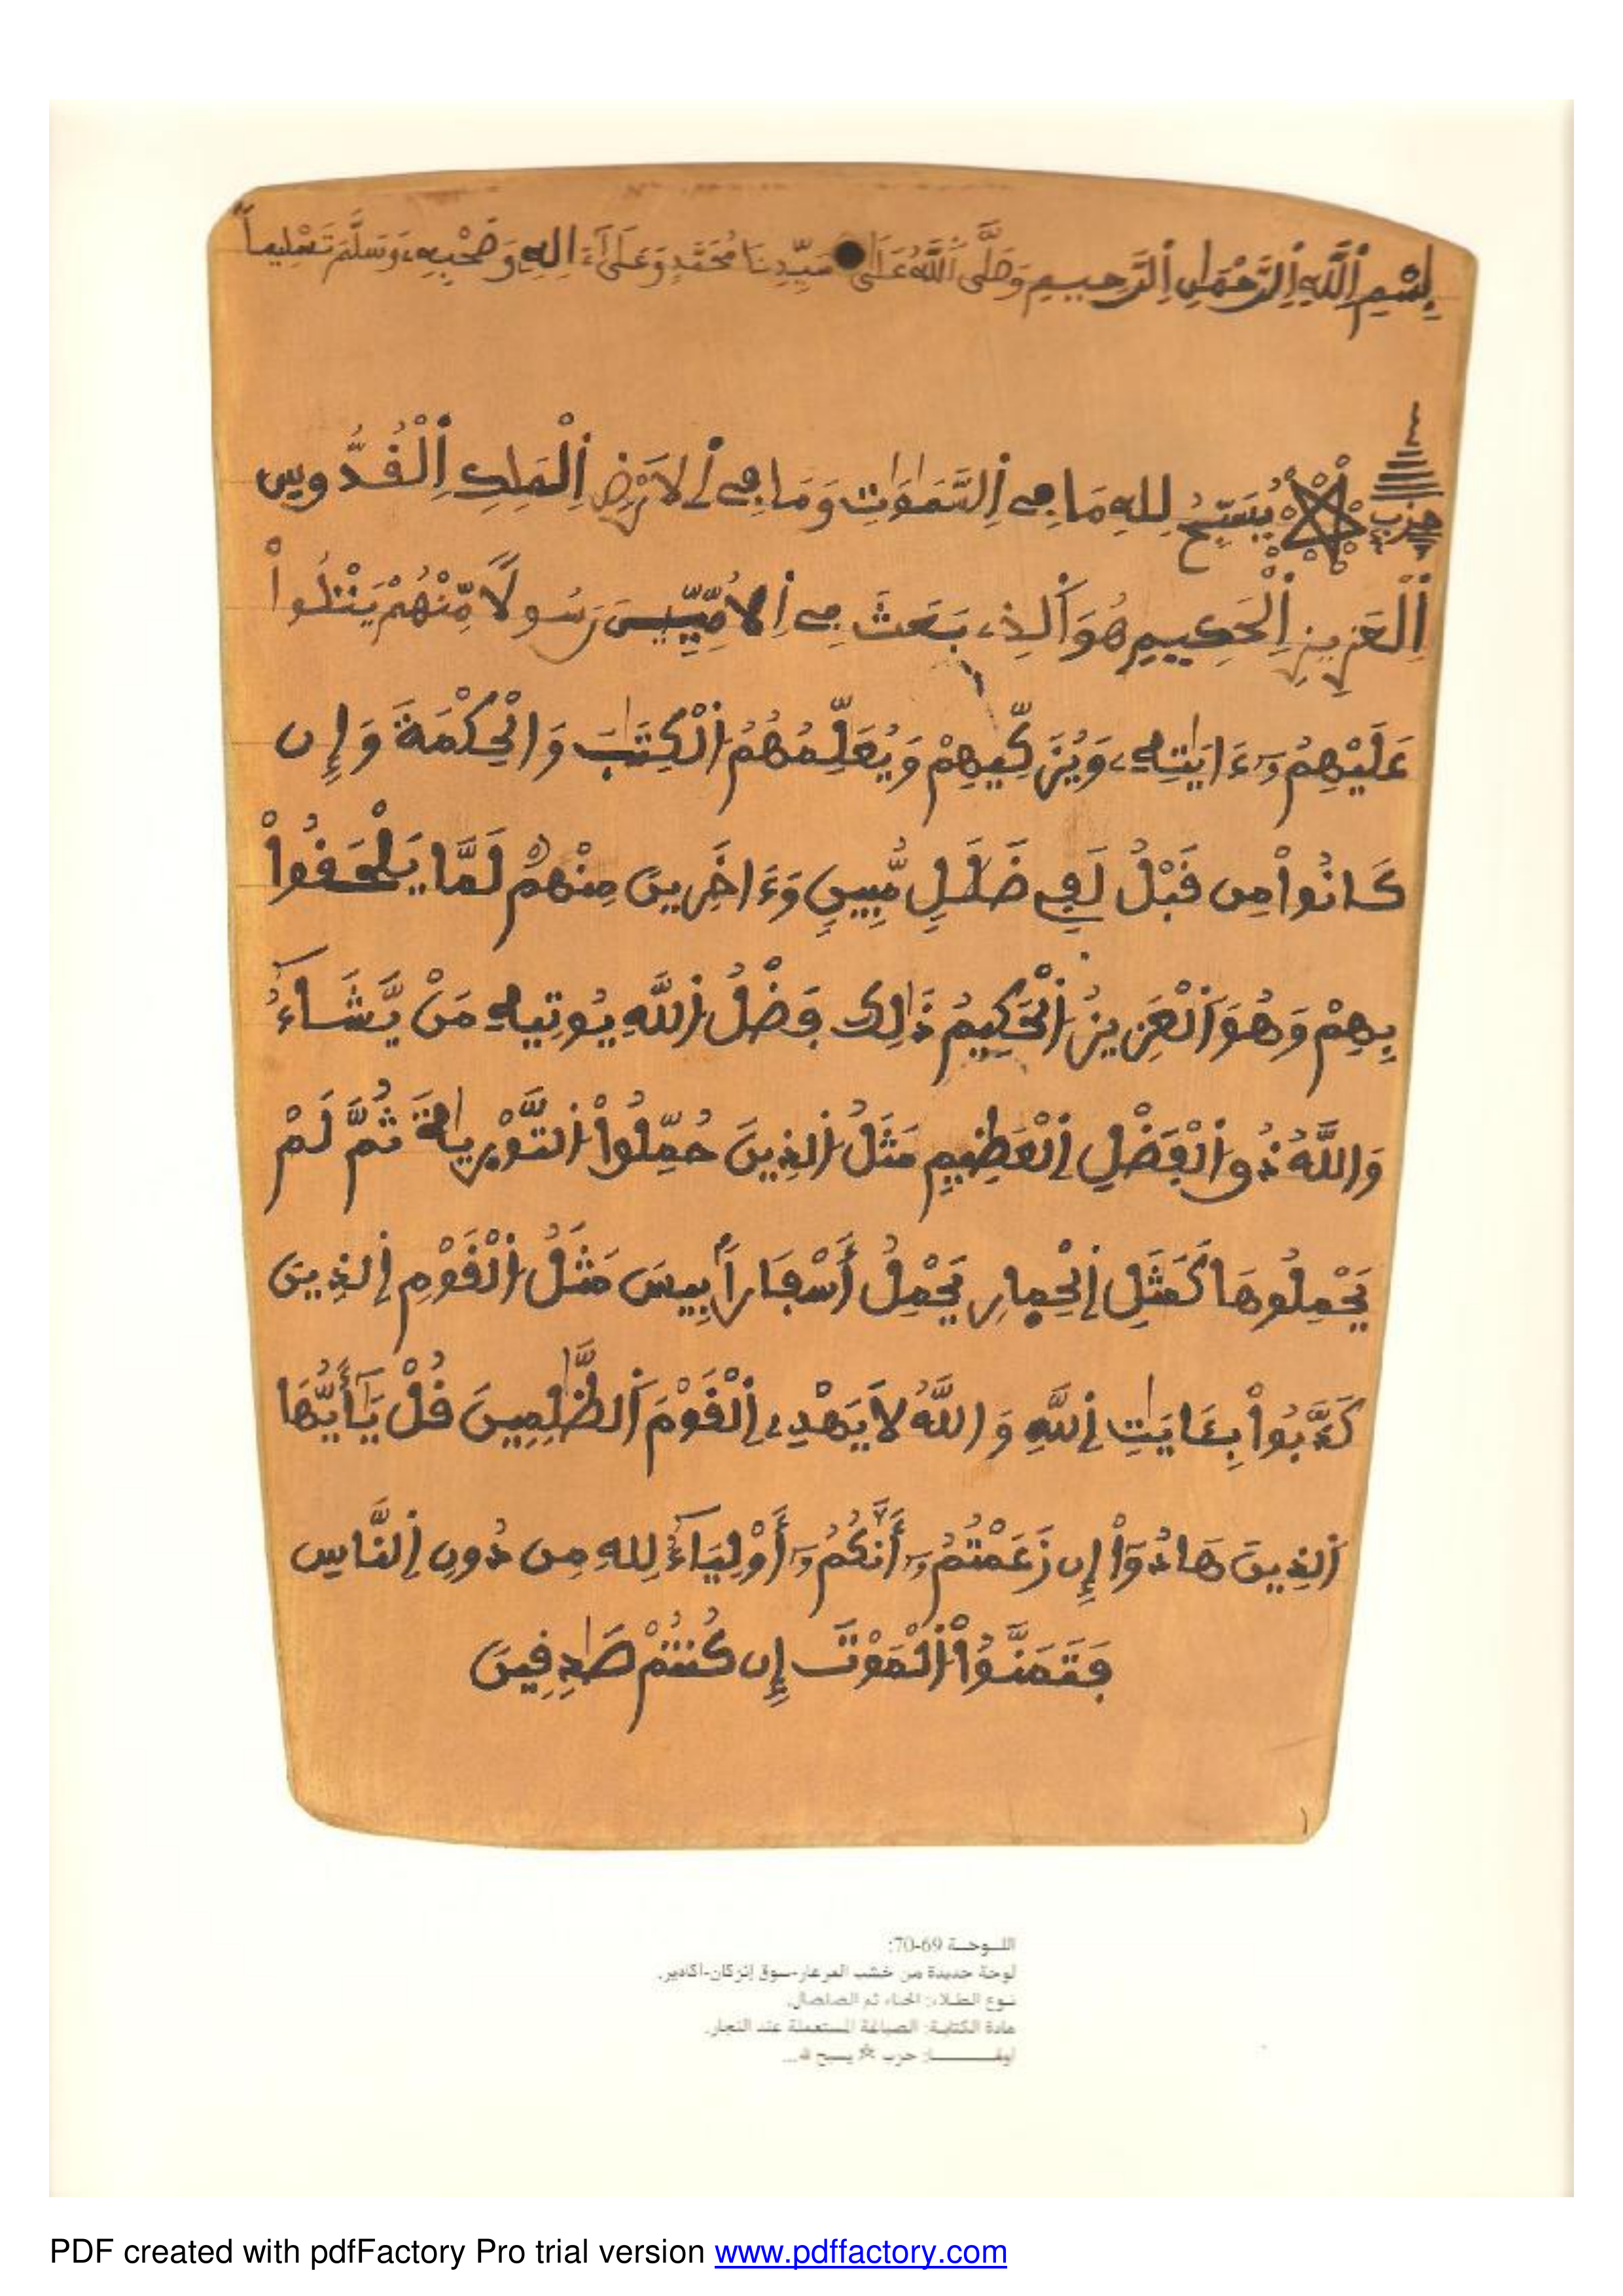 بِسْمِ اِللَّهِ اِلرَّحْمَٰنِ اِلرَّحِيمِ وَصَلَّى اَللَّهُ عَلَى سَيِّدِنَا مُحَمَّدٍ وَعَلَىٰٓ ءَالِهِۦ وَصَحْبِهِۦ وَسَلَّمَ تَسْلِيماً
حزب يُسَبِّحُ لِلهِ مَا فِے اِلسَّمَٰوَٰتِ وَمَا فِے اِلَارْضِ اِلْمَلِكِ اِلْقُدُّوسِ
اِلْعَزِيزِ اِلْحَكِيمِ هُوَ اَلذِے بَعَثَ فِے اِلُامِّيِّينَ رَسُولاً مِّنْهُمْ يَتْلُواْ
عَلَيْهِمُۥٓ ءَايَٰتِهِۦ وَيُزَكِّيهِمْ وَيُعَلِّمُهُمُ اُلْكِتَٰبَ وَالْحِكْمَةَ وَإِن
كَانُواْ مِن قَبْلُ لَفِے ضَلَٰلٍ مُّبِينٍ وَءَاخَرِينَ مِنْهُمْ لَمَّا يَلْحَقُواْ
بِهِمْ وَهُوَ اَلْعَزِيزُ اُلْحَكِيمُ ذَٰلِكَ فَضْلُ اُللَّهِ يُوتِيهِ مَنْ يَّشَآءُ
وَاللَّهُ ذُو اُلْفَضْلِ اِلْعَظِيمِ مَثَلُ اُلذِينَ حُمِّلُواْ اُلتَّوْرَيٰةَ ثُمَّ لَمْ
يَحْمِلُوهَا كَمَثَلِ اِلْحِمارِ يَحْمِلُ أَسْفَاراً بِيسَ مَثَلُ اُلْقَوْمِ اِلذِينَ
كَذَّبُواْ بِـَٔايَٰتِ اِللَّهِ وَاللَّهُ لَا يَهْدِے اِلْقَوْمَ اَلظَّٰلِمِينَ قُلْ يَٰٓأَيُّهَا
اَلذِينَ هَادُوٓاْ إِن زَعَمْتُمُۥٓ أَنَّكُمُۥٓ أَوْلِيَآءُ لِلهِ مِن دُونِ اِلنَّاسِ
فَتَمَنَّوُاْ اُلْمَوْتَ إِن كُنتُمْ صَٰدِقِينَ
اللوحة 69-70:
لوحة جديدة من خشب العرعار-سوق إنزكان-أكادير.
نوع الطلاء: الحناء ثم الصلصال.
مادة الكتابة: الصباغة المستعملة عند النجار.
أولها: حزب ☆ يسبح لله...
PDF created with pdfFactory Pro trial version www.pdffactory.com